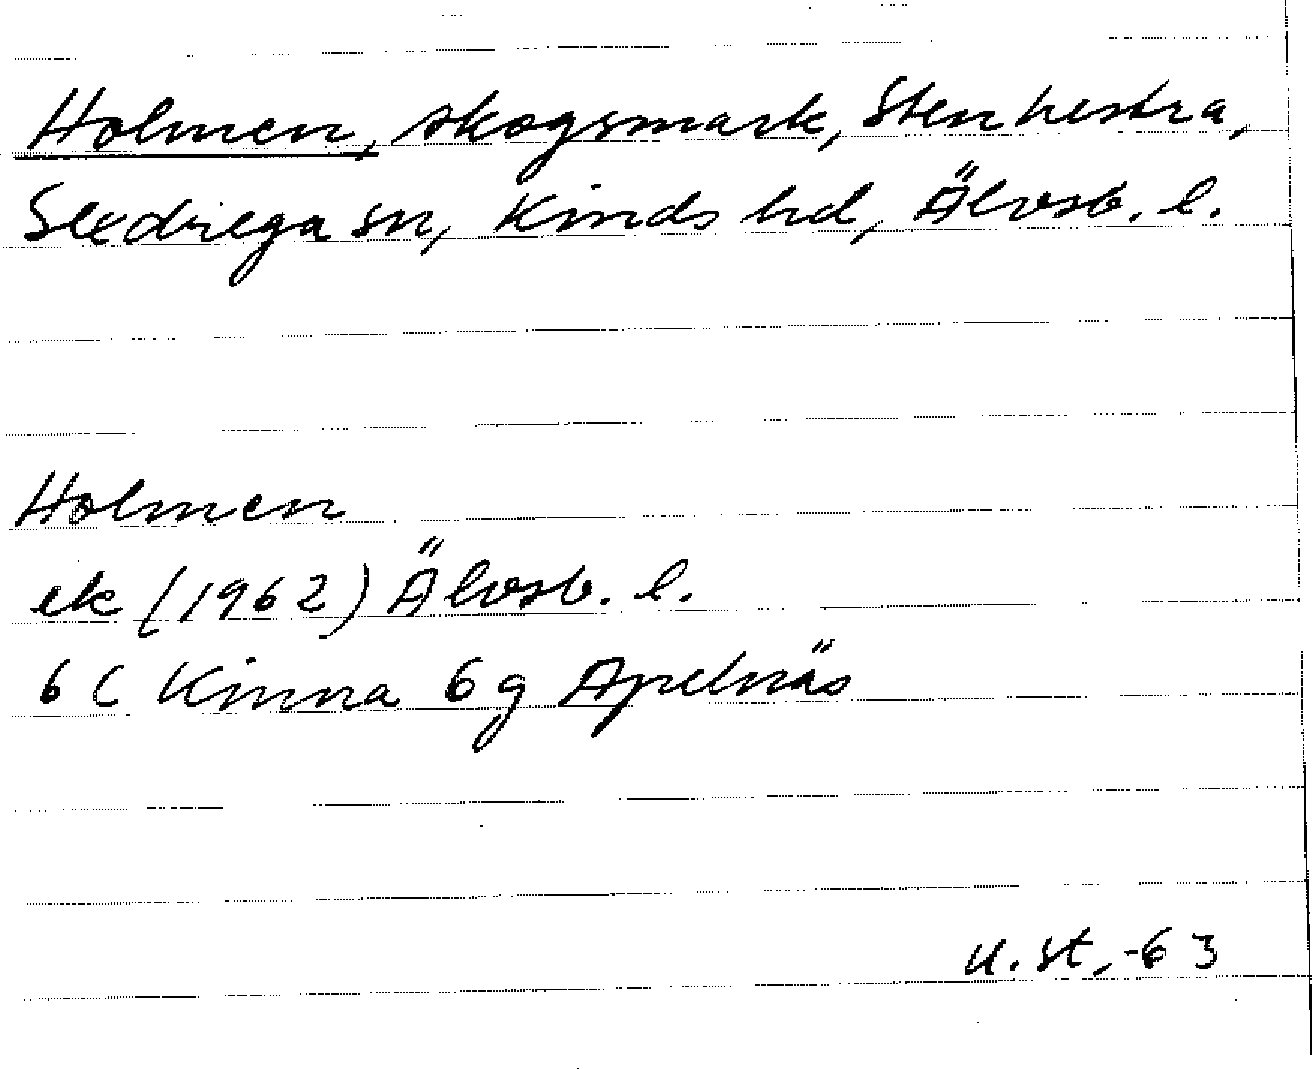 Holmen, skogsmark, Stenhestra,
Sexdrega sn, Kinds hd, Älvsb. l.
Holmen
ek (1962) Älvsb. l.
6 C Kinna 6g Apelnäs
U. St, -63